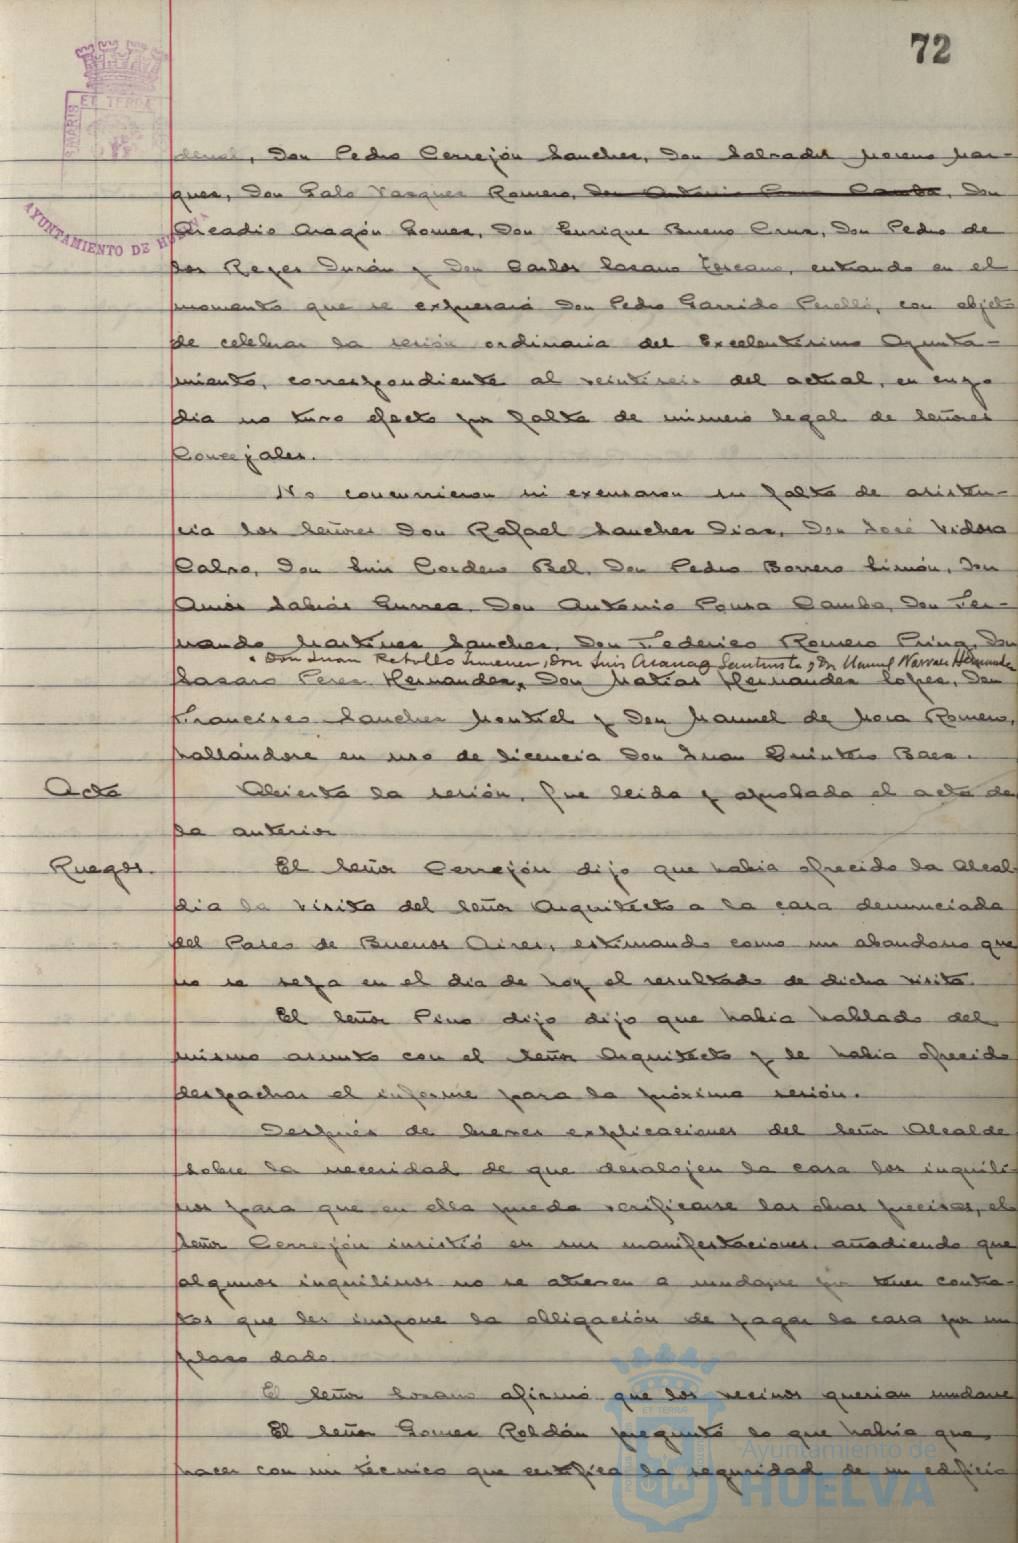 72
ET TERRA
MARIS
AYUNTAMIENTO DE HUELVA
Don Pedro Cerrejón Sanchez, Don Salvador Moreno Mar-
quez, Don Galo Vazquez Romero, Don Antonio Ponza Camba, Don
Arcadio Aragón Gomez, Don Enrique Bueno Cruz, Don Pedro de
los Reyes Durán y Don Carlos Lozano Toscano, entrando en el
momento que se expresará Don Pedro Garrido Perelló, con objeto
de celebrar la sesión ordinaria del Excelentísimo Ayunta-
miento, correspondiente al veintiseis del actual, en cuyo
dia no tuvo efecto por falta de número legal de Señores
Concejales.
No concurrieron ni excusaron su falta de asisten-
cia los Señores Don Rafael Sanchez Diaz, Don José Vidosa
Calvo, Don Luis Cordero Bel, Don Pedro Borrero Limón, Don
Amós Sabrás Gurrea, Don Antonio Ponza Camba, Don Fer-
nando Martinez Sanchez, Don Federico Romero Pring, Don
Don Juan Rebollo Jimenez, Don Luis Aranag Santmsta y Dn Manuel Narvaez Hernandez
Lazaro Perez Hernandez, Don Matías Hernandez Lopez, Don
Francisco Sanchez Montiel y Don Manuel de Mora Romero,
hallándose en uso de licencia Don Juan Quintero Baez.
Acta Abierta la sesión, fue leida y aprobada el acta de
la anterior
Ruegos. El Señor Cerrejón dijo que habia ofrecido la Alcal-
dia la visita del Señor Arquitecto a la casa denunciada
del Paseo de Buenos Aires, estimando como un abandono que
no se sepa en el dia de hoy el resultado de dicha visita.
El Señor Pino dijo dijo que habia hablado del
mismo asunto con el Señor Arquitecto y le habia ofrecido
despachar el informe para la próxima sesión.
Después de breves explicaciones del Señor Alcalde
sobre la necesidad de que desalojen la casa los inquili-
nos para que en ella pueda verificarse las obras precisas, el
Señor Cerrejón insistió en sus manifestaciones, añadiendo que
algunos inquilinos no se atreven a mudarse por tener contra-
tos que les impone la obligación de pagar la casa por un
plazo dado.
El Señor Lozano afirmó que los vecinos querian mudarse
El Señor Gomez Roldán preguntó lo que habría que
hacer con un técnico que certifica la seguridad de un edificio
Ayuntamiento de
HUELVA